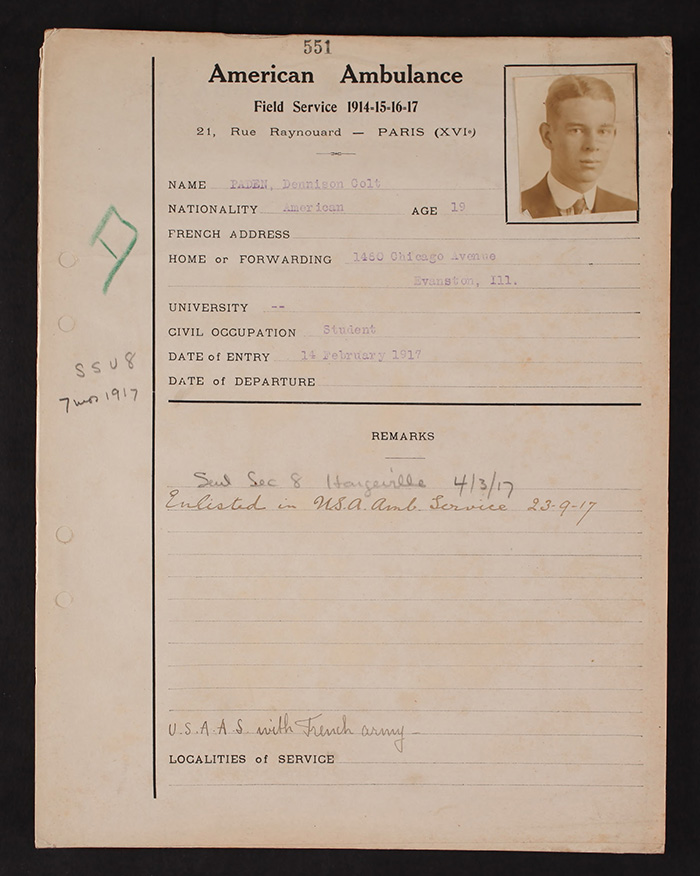 551
American Ambulance
Field Service 1914-15-16-17
21, Rue Raynouard — PARIS (XVIe)
NAME PADEN, Dennison Colt
NATIONALITY American AGE 19
FRENCH ADDRESS
HOME or FORWARDING 1460 Chicago Avenue
Evanston, Ill.
UNIVERSITY --
CIVIL OCCUPATION Student
DATE of ENTRY 14 February 1917
DATE of DEPARTURE
SSU 8
7 mos 1917
REMARKS
Sec 8 4/3/17
Enlisted in U.S.A. Amb. Service 23-9-17
U.S.A.A.S. with French army
LOCALITIES of SERVICE